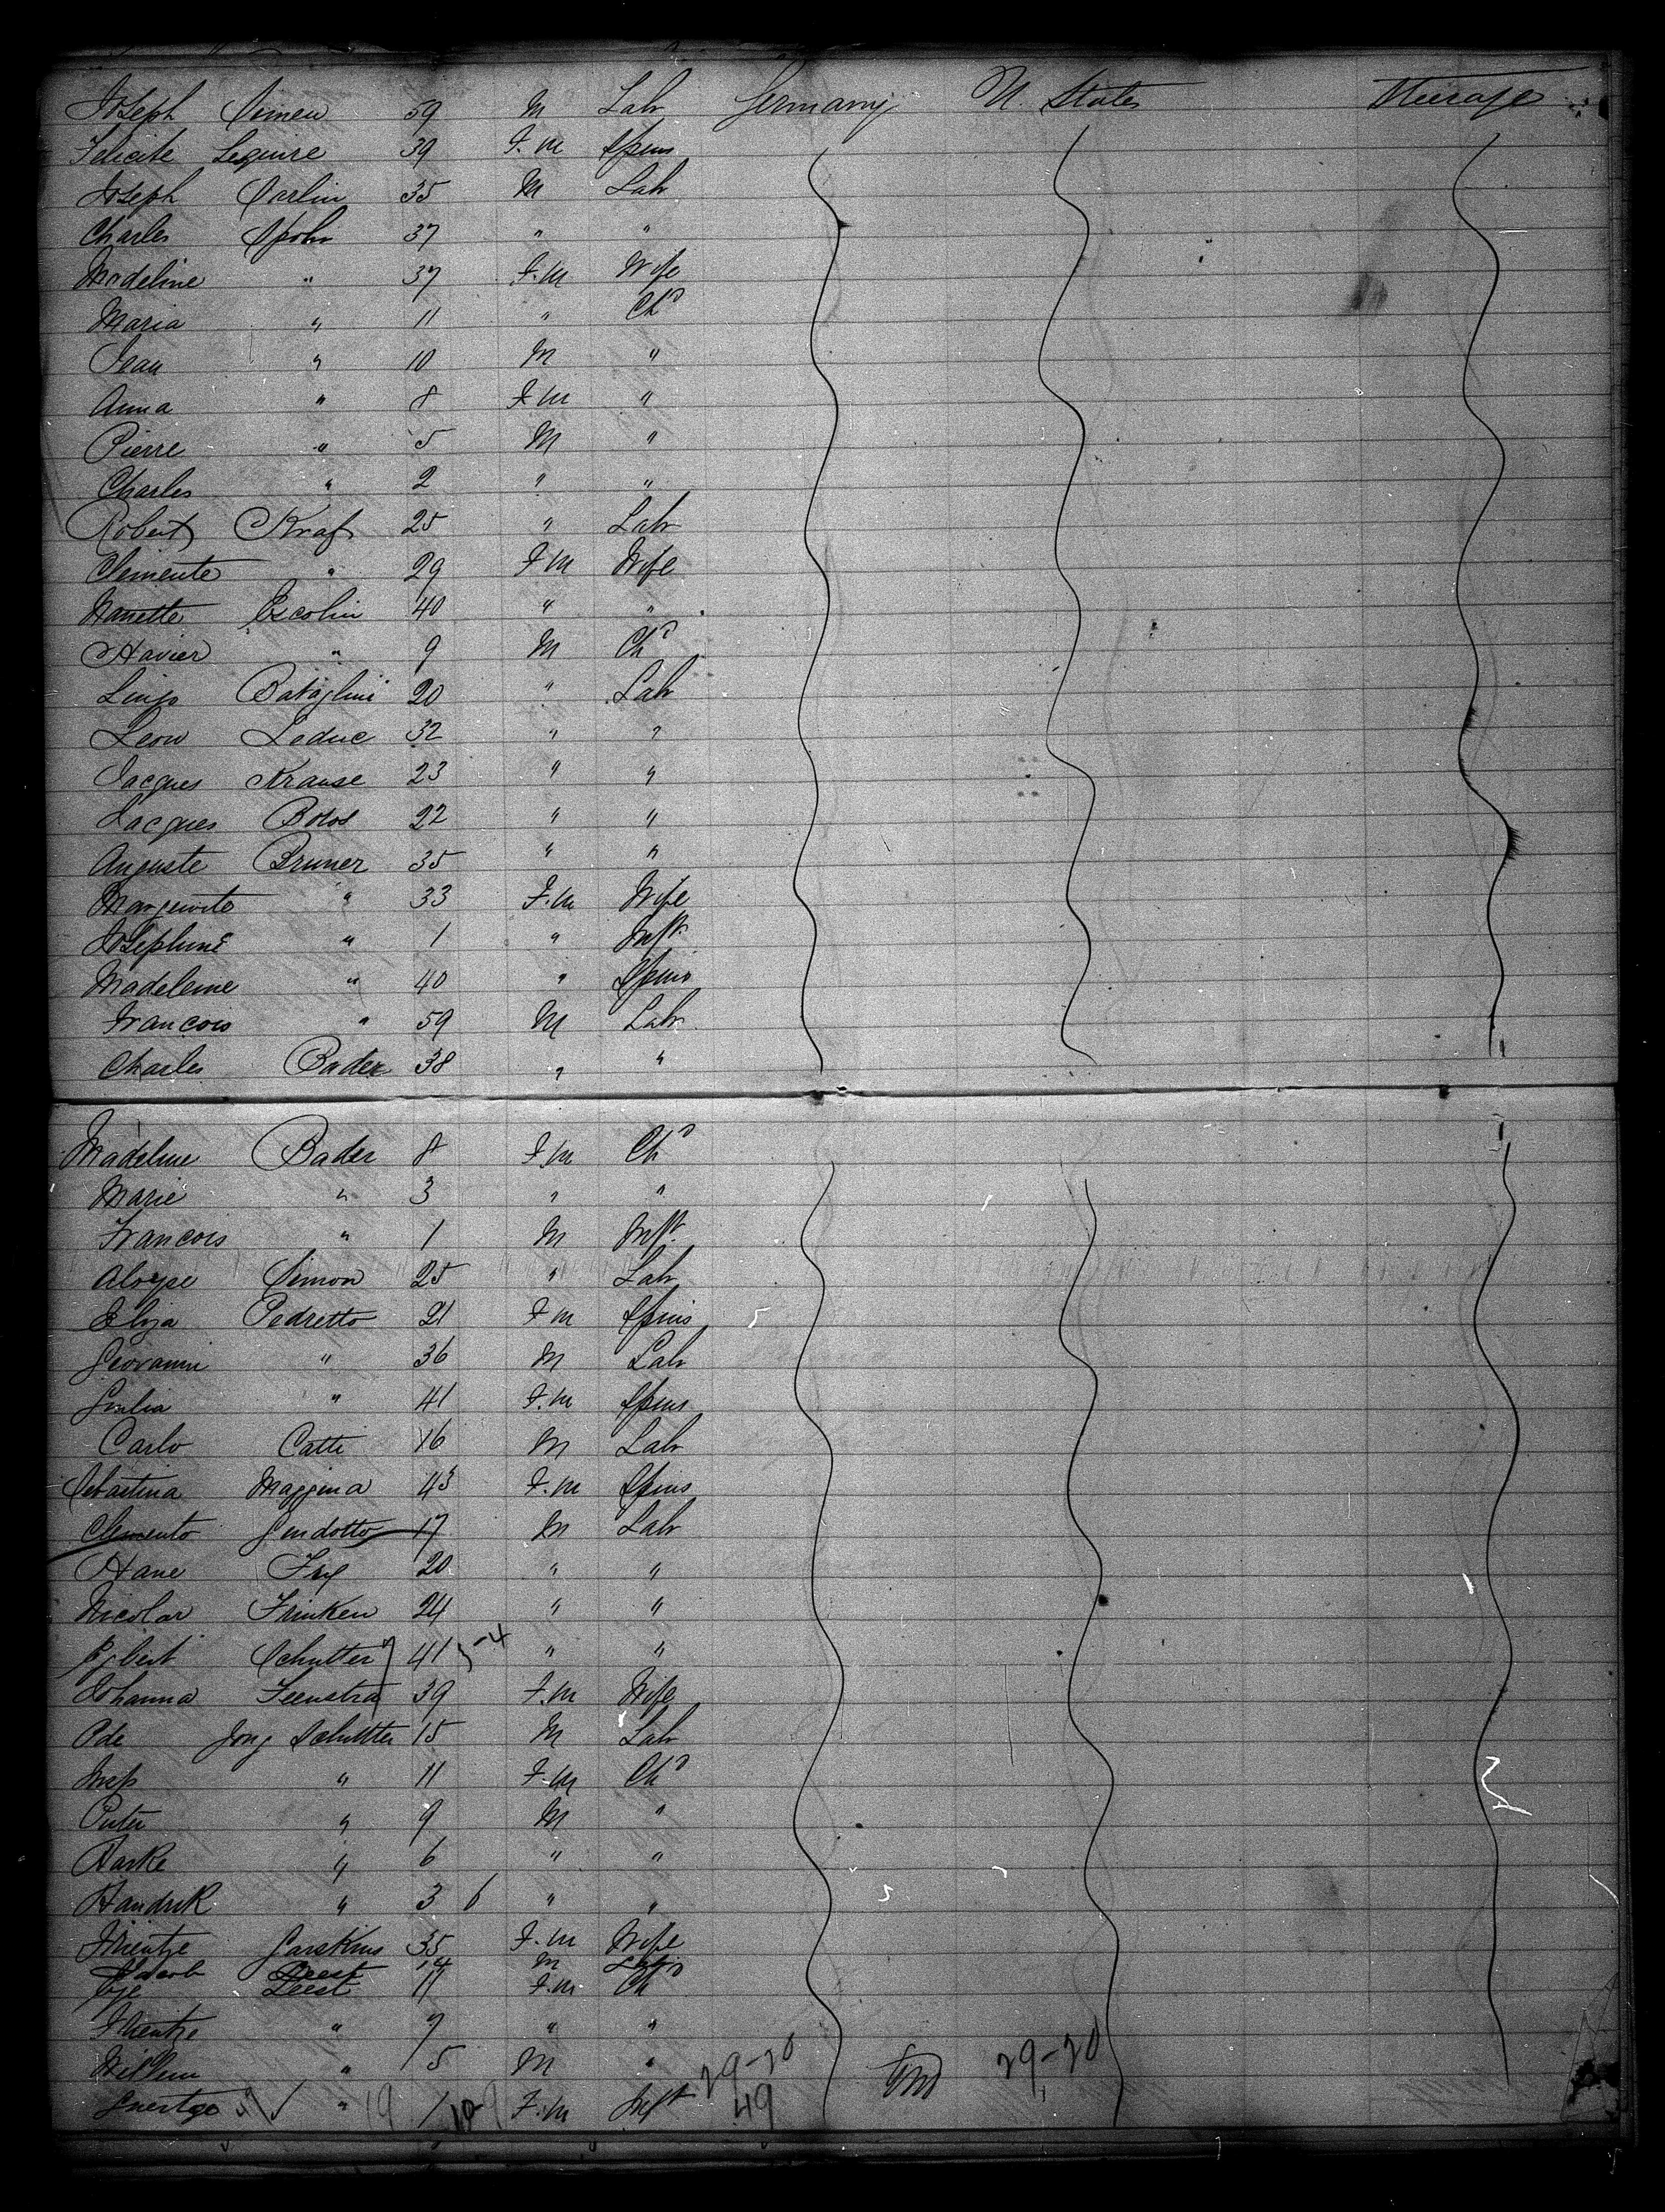 Joseph Simen 59 M Labr Germany U. States Steerage
Felicite Lequire 39 F.m Spins
Joseph Carlin 35 M Labr
Charles Spohr 37 " "
Madeline " 37 F.m Wife
Maria " 11 " Chd
Jean " 10 M "
Anna " 8 F.m "
Pierre " 5 M "
Charles " 2 " "
Robert Kraf 25 " Labr
Clemente " 29 F.m Wife
Nanette Escolin 40 " "
Xavier " 9 M Chd
Bataglini 20 " Labr
Leon Leduc 32 " "
Jacques Krause 23 " "
Jacques Bolot 22 " "
Auguste Bruner 35 " "
Marguerite " 33 F.m Wife
Josephine " 1 " Inft
Madeleine " 40 " Spins
Francois " 59 M Labr
Charles Bader 38 " "
Madeline Bader 8 F.m Chd
Marie " 3 " "
Francois " 1 M Inft
Aloyse Simon 25 " Labr
Eliza Pedretto 21 F.m Spins
Giovanni " 36 M Labr
Giulia " 41 F.m Spins
Carlo Catti 16 M Labr
Sebastina Maggina 43 F.m Spins
Clemento Gendotto 17 M Labr
Hane Frey 20 " "
Nicolar Frinken 24 " "
Egbert Schutter 41 -4 " "
Johanna Feenstra 39 F.m Wife
Ode Jong Schutter 15 M Labr
11 F.m Chd
Pieter " 9 M "
Harke " 6 " "
Handrik " 3 6 " "
Trientje Garskins 35 F.m Wife
Jacob Leest 14 M Labr
Leest 11 F.m Chd
Trientje " 7 " "
Willem " 5 M " 29-20 29-20
Geertge " 19 1 10-9 F.m Inft 49